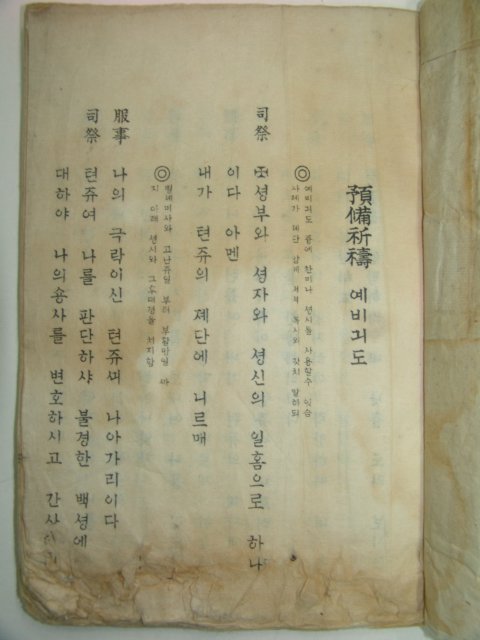 預備祈禱 예비긔도
◎예비긔도 즁에 한미나 셩시를 사용할수 잇슴
사졔가 졔단 압헤 셔셔 복사와 갓치 말하되
司祭 ✠셩부와 셩자와 셩신의 일홈으로 하나
이다 아멘
내가 텬쥬의 졔단에 니르매
◎ 미사와 고난쥬일 부터 부활 까
지 아래 셩시와 그 을 치지함
服事 나의 극락이신 텬쥬ᄭᅴ 나아가리이다
司祭 텬쥬여 나를 판단하샤 불경한 백셩에
대하야 나의송사를 변호하시고 간사